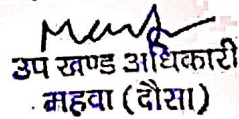 उप खण्ड अधिकारी
महवा (दौसा)